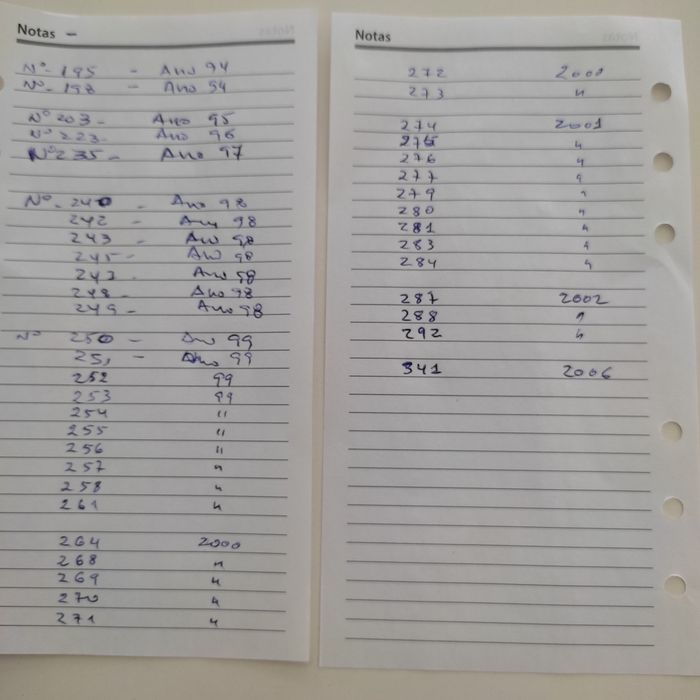 Notas -
Nº - 195 - Ano 94
Nº - 198 - Ano 94
Nº 203 - Ano 95
Nº 223 - Ano 96
Nº 235 - Ano 97
Nº - 240 - Ano 98
242 - Ano 98
243 - Ano 98
245 - Ano 98
247 - Ano 98
248 - Ano 98
249 - Ano 98
Nº 250 - Ano 99
251 - Ano 99
252 99
253 99
254 "
255 "
256 "
257 "
258 "
261 "
264 2000
268 "
269 "
270 "
271 "
Notas
272 2000
273 "
274 2001
275 "
276 "
277 "
279 "
280 "
281 "
283 "
284 "
287 2002
288 "
292 "
341 2006